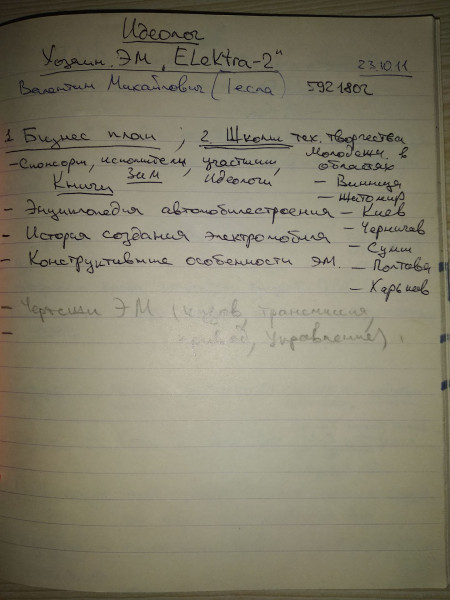 Идеолог
Хозяин ЭМ „ELektra-2"
23.10.11
Валентин Михайлович (Тесла) 5921802
1 Бизнес план ; 2. Школы тех. творчества
- Спонсоры, исполнители, участники, молодежи в
ЗИМ идеологи областях
Книги - Винница
- Житомир
- Энциклопедия автомобилестроения - Киев
- Чернигов
- История создания электромобиля
- Сумы
- Конструктивные особенности ЭМ. - Полтава
- Харьков
- Чертежи ЭМ (кузов, трансмиссия,
- привод, управление).